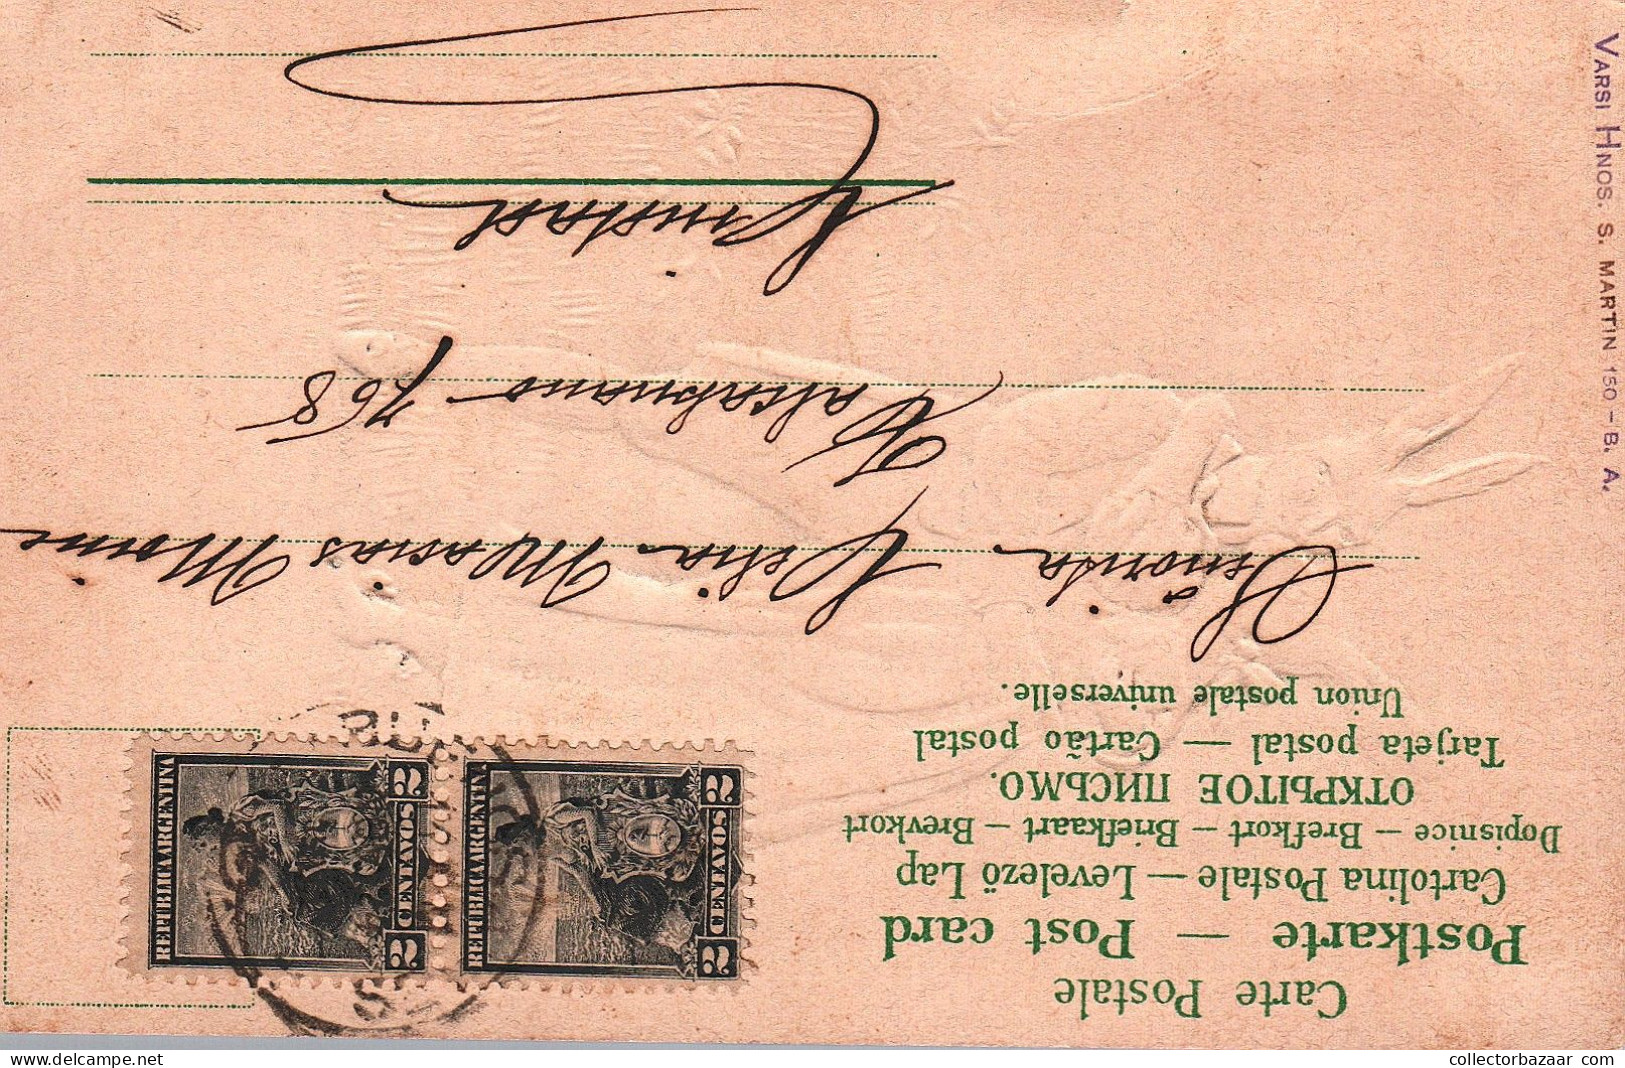 Carte Postale
Postkarte — Post card
Cartolina Postale — Levelező Lap
Dopisnice — Brefkort — Briefkaart — Brevkort
ОТКРЫТОЕ ПИСЬМО.
Tarjeta postal — Cartão postal
Union postale universelle.
REPUBLICA ARGENTINA
2 CENTAVOS 2
REPUBLICA ARGENTINA
2 CENTAVOS 2
Señorita Celia Macias
Talcahuano 768
VARSI HNOS. S. MARTIN 150 – B. A.
collectorbazaar.com